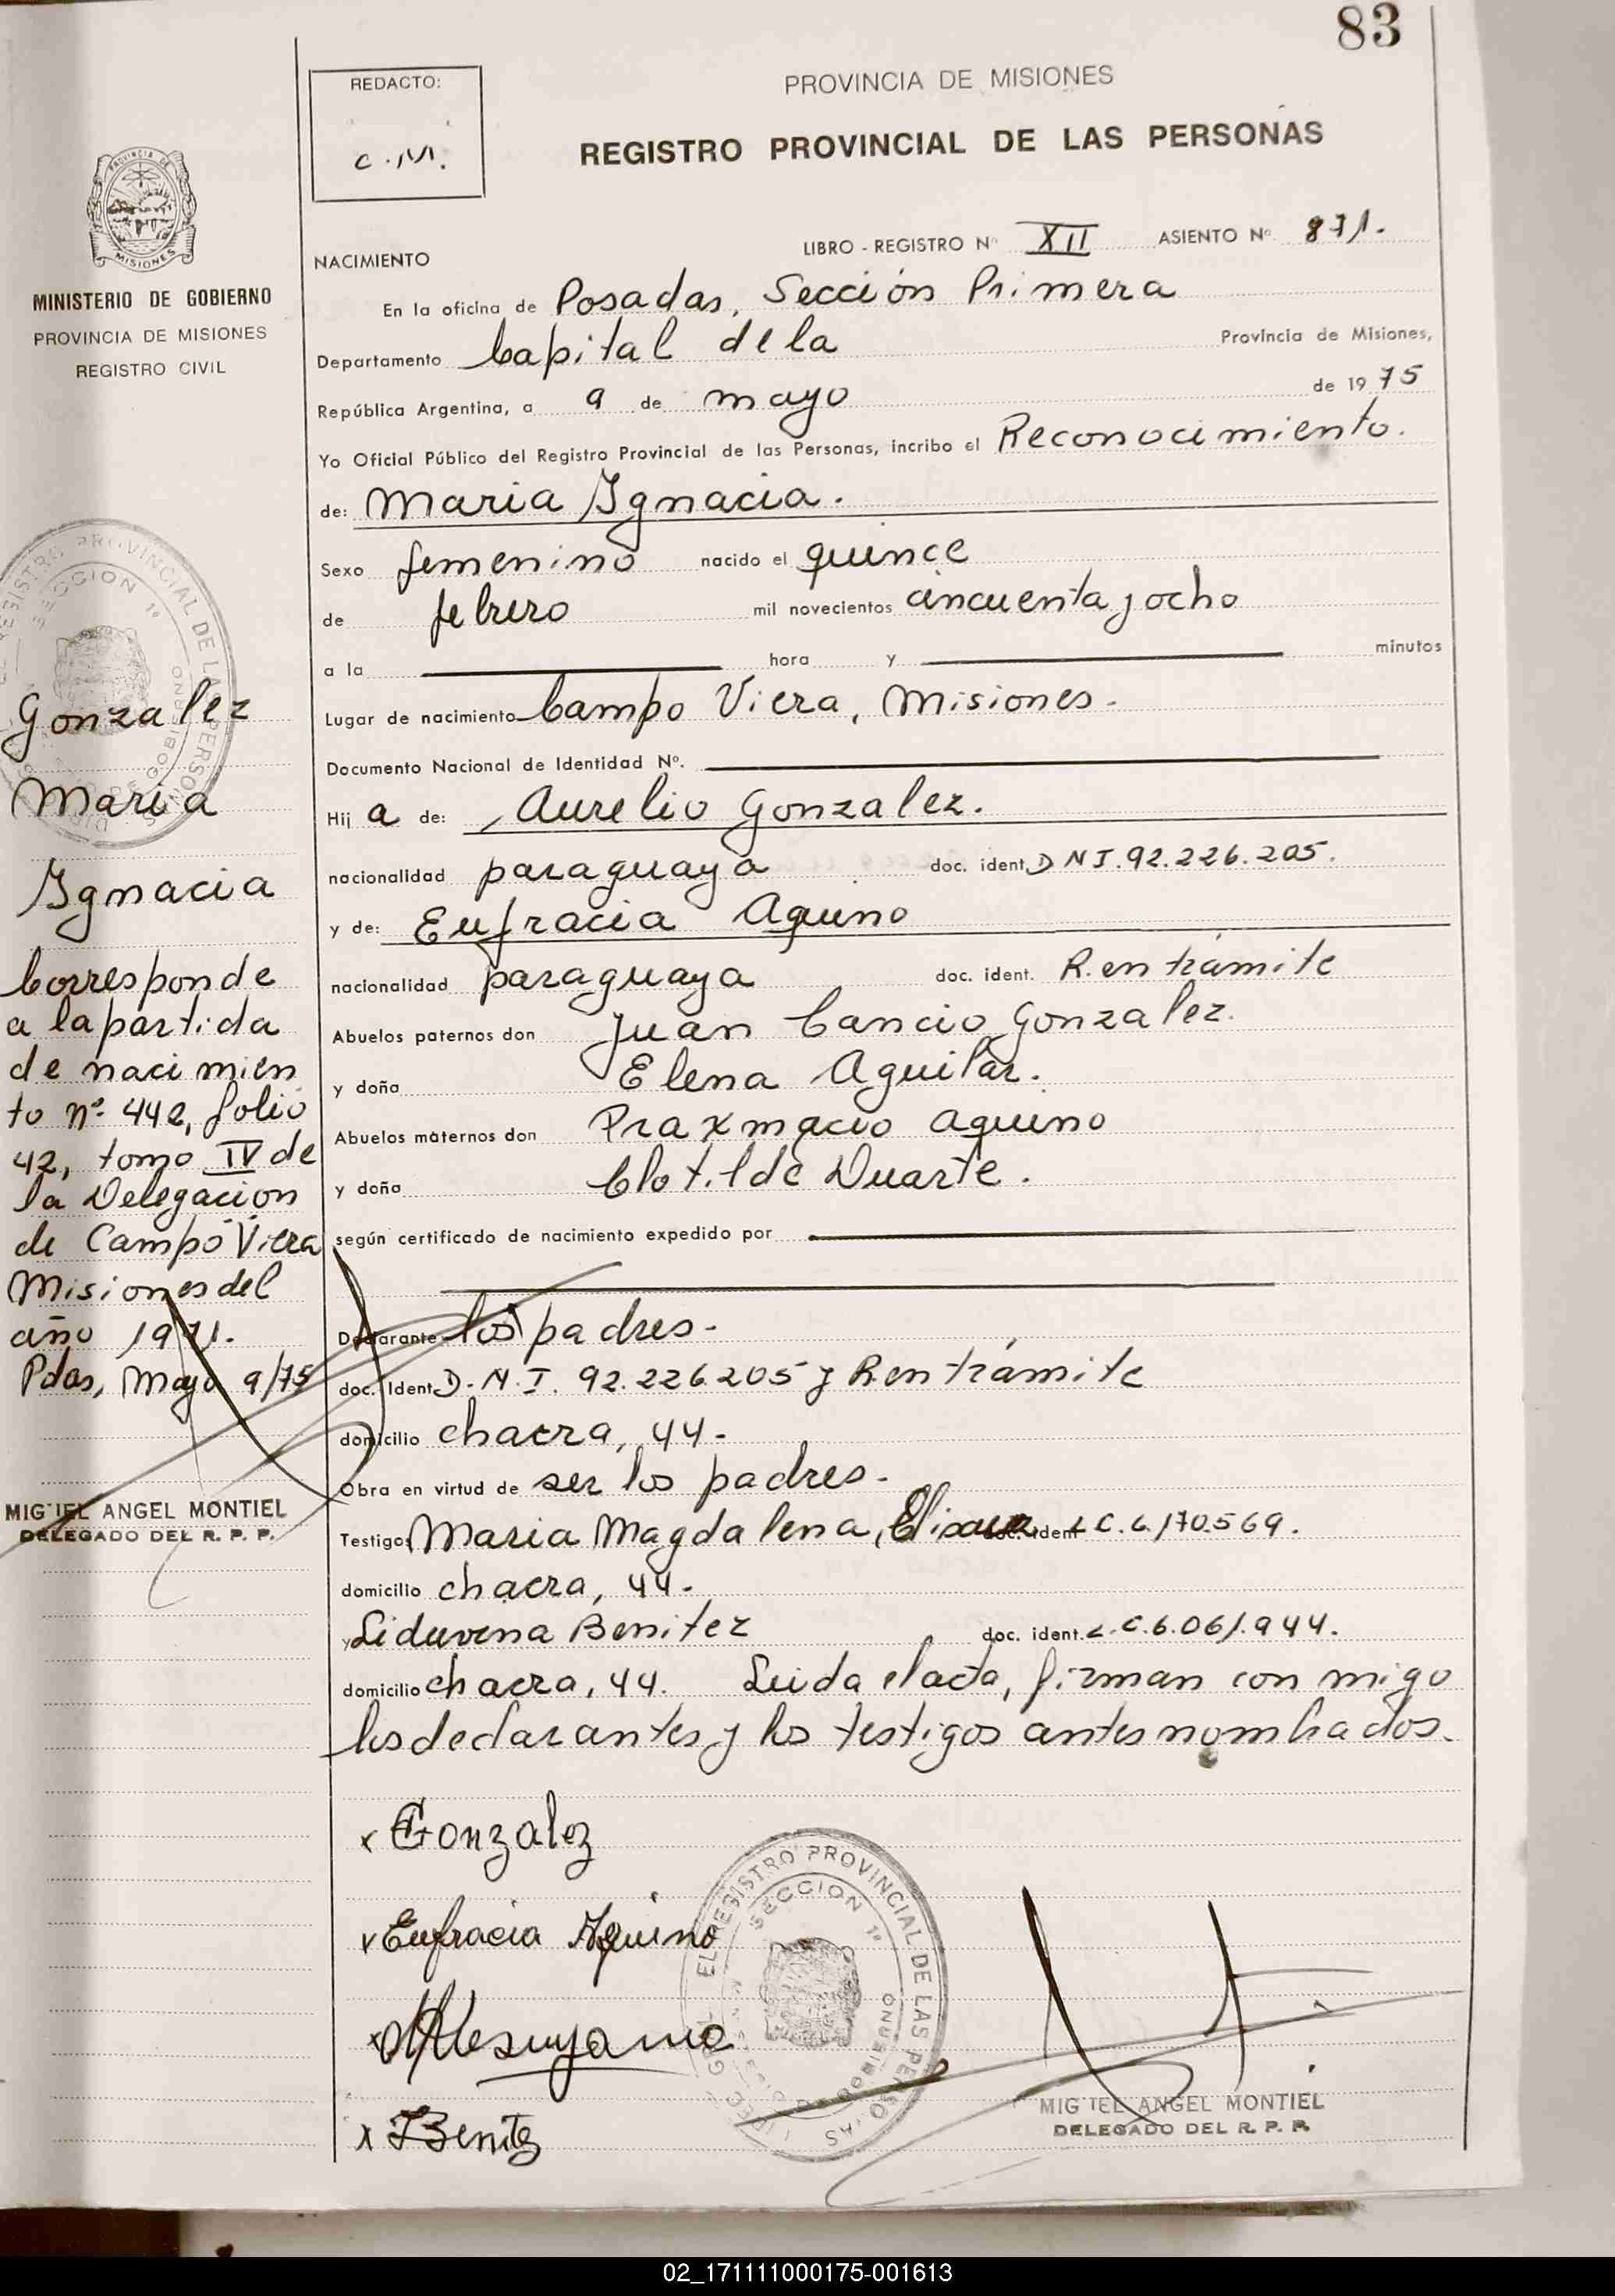 83
REDACTO:
C.M.
PROVINCIA DE MISIONES
REGISTRO PROVINCIAL DE LAS PERSONAS
NACIMIENTO
LIBRO - REGISTRO Nº XII ASIENTO Nº 871.
En la oficina de Posadas, Sección Primera
Departamento Capital de la Provincia de Misiones,
República Argentina, a 9 de mayo de 1975
Yo Oficial Público del Registro Provincial de las Personas, incribo el Reconocimiento.
de: Maria Ygnacia.
Sexo femenino nacido el quince
de febrero mil novecientos cincuenta y ocho
a la hora y minutos
Lugar de nacimiento Campo Viera, Misiones.
Documento Nacional de Identidad Nº.
Hij a de: Aurelio Gonzalez.
nacionalidad paraguaya doc. ident. D N I. 92.226.205.
y de: Eufracia Aquino
nacionalidad paraguaya doc. ident. R. en trámite
Abuelos paternos don Juan Cancio Gonzalez.
y doña Elena Aguilar.
Abuelos maternos don Praxmacio Aquino
y doña Clotilde Duarte.
según certificado de nacimiento expedido por
Declarante los padres.
doc. Ident. D.N.I. 92.226.205 y R. en trámite
domicilio chacra, 44.
Obra en virtud de ser los padres.
Testigos Maria Magdalena, doc. ident L.C. 6.170.569.
domicilio chacra, 44.
y Liduvina Benitez doc. ident. L.C. 6.061.944.
domicilio chacra, 44. Leida el acta, firman con migo
los declarantes y los testigos antes nombrados.
x Gonzalez
x Eufracia Aquino
x Benitez
EL REGISTRO PROVINCIAL DE LAS PERSONAS
SECCION 1ª
MIGUEL ANGEL MONTIEL
DELEGADO DEL R. P. P.
MISIONES
MINISTERIO DE GOBIERNO
PROVINCIA DE MISIONES
REGISTRO CIVIL
REGISTRO PROVINCIAL DE LAS PERSONAS
SECCION 1ª
Gonzalez
Maria
Ygnacia
Corresponde
a la partida
de nacimien
to nº 442, folio
42, tomo IV de
la Delegacion
de Campo Viera
Misiones del
año 1971.
Pdas, Mayo 9/75
MIGUEL ANGEL MONTIEL
DELEGADO DEL R. P. P.
02_171111000175-001613